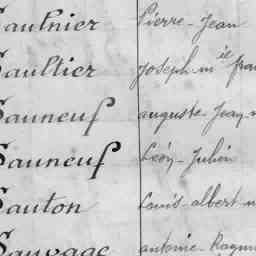 Saulnier Pierre-Jean
Saultier Joseph-Mie
Sauneuf auguste-Jean
Sauneuf Léon-Julien
Sauton Louis-albert
Sauvage antoine-Raym